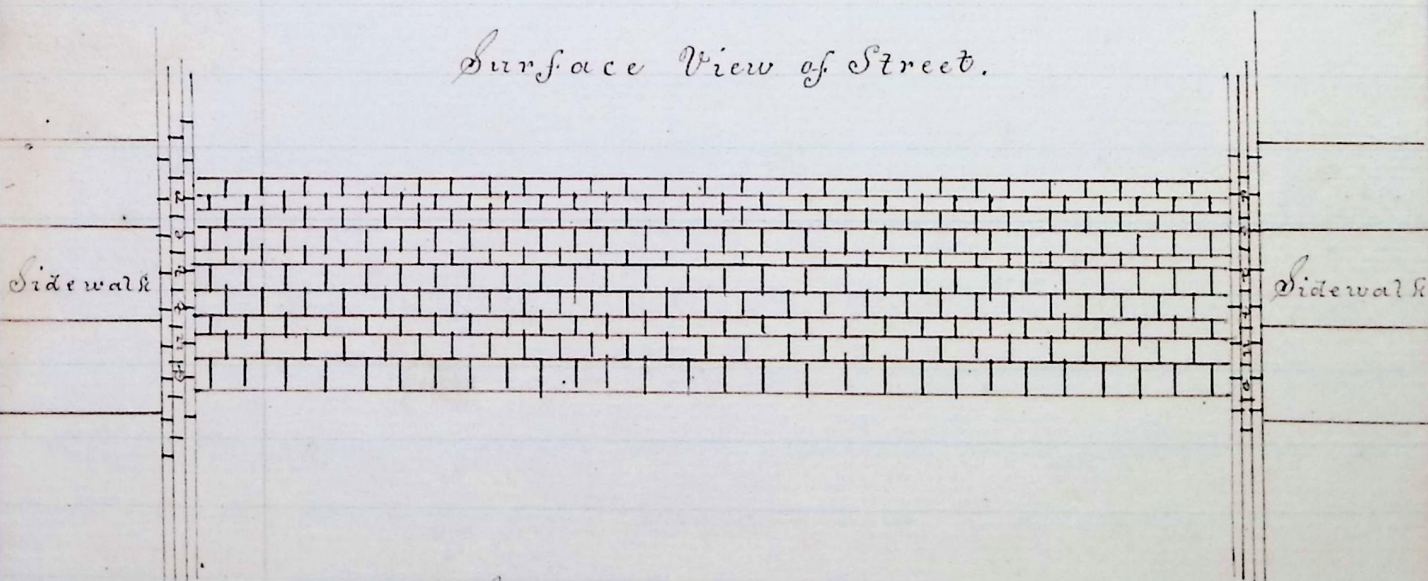 Surface View of Street.
Sidewalk
Sidewalk